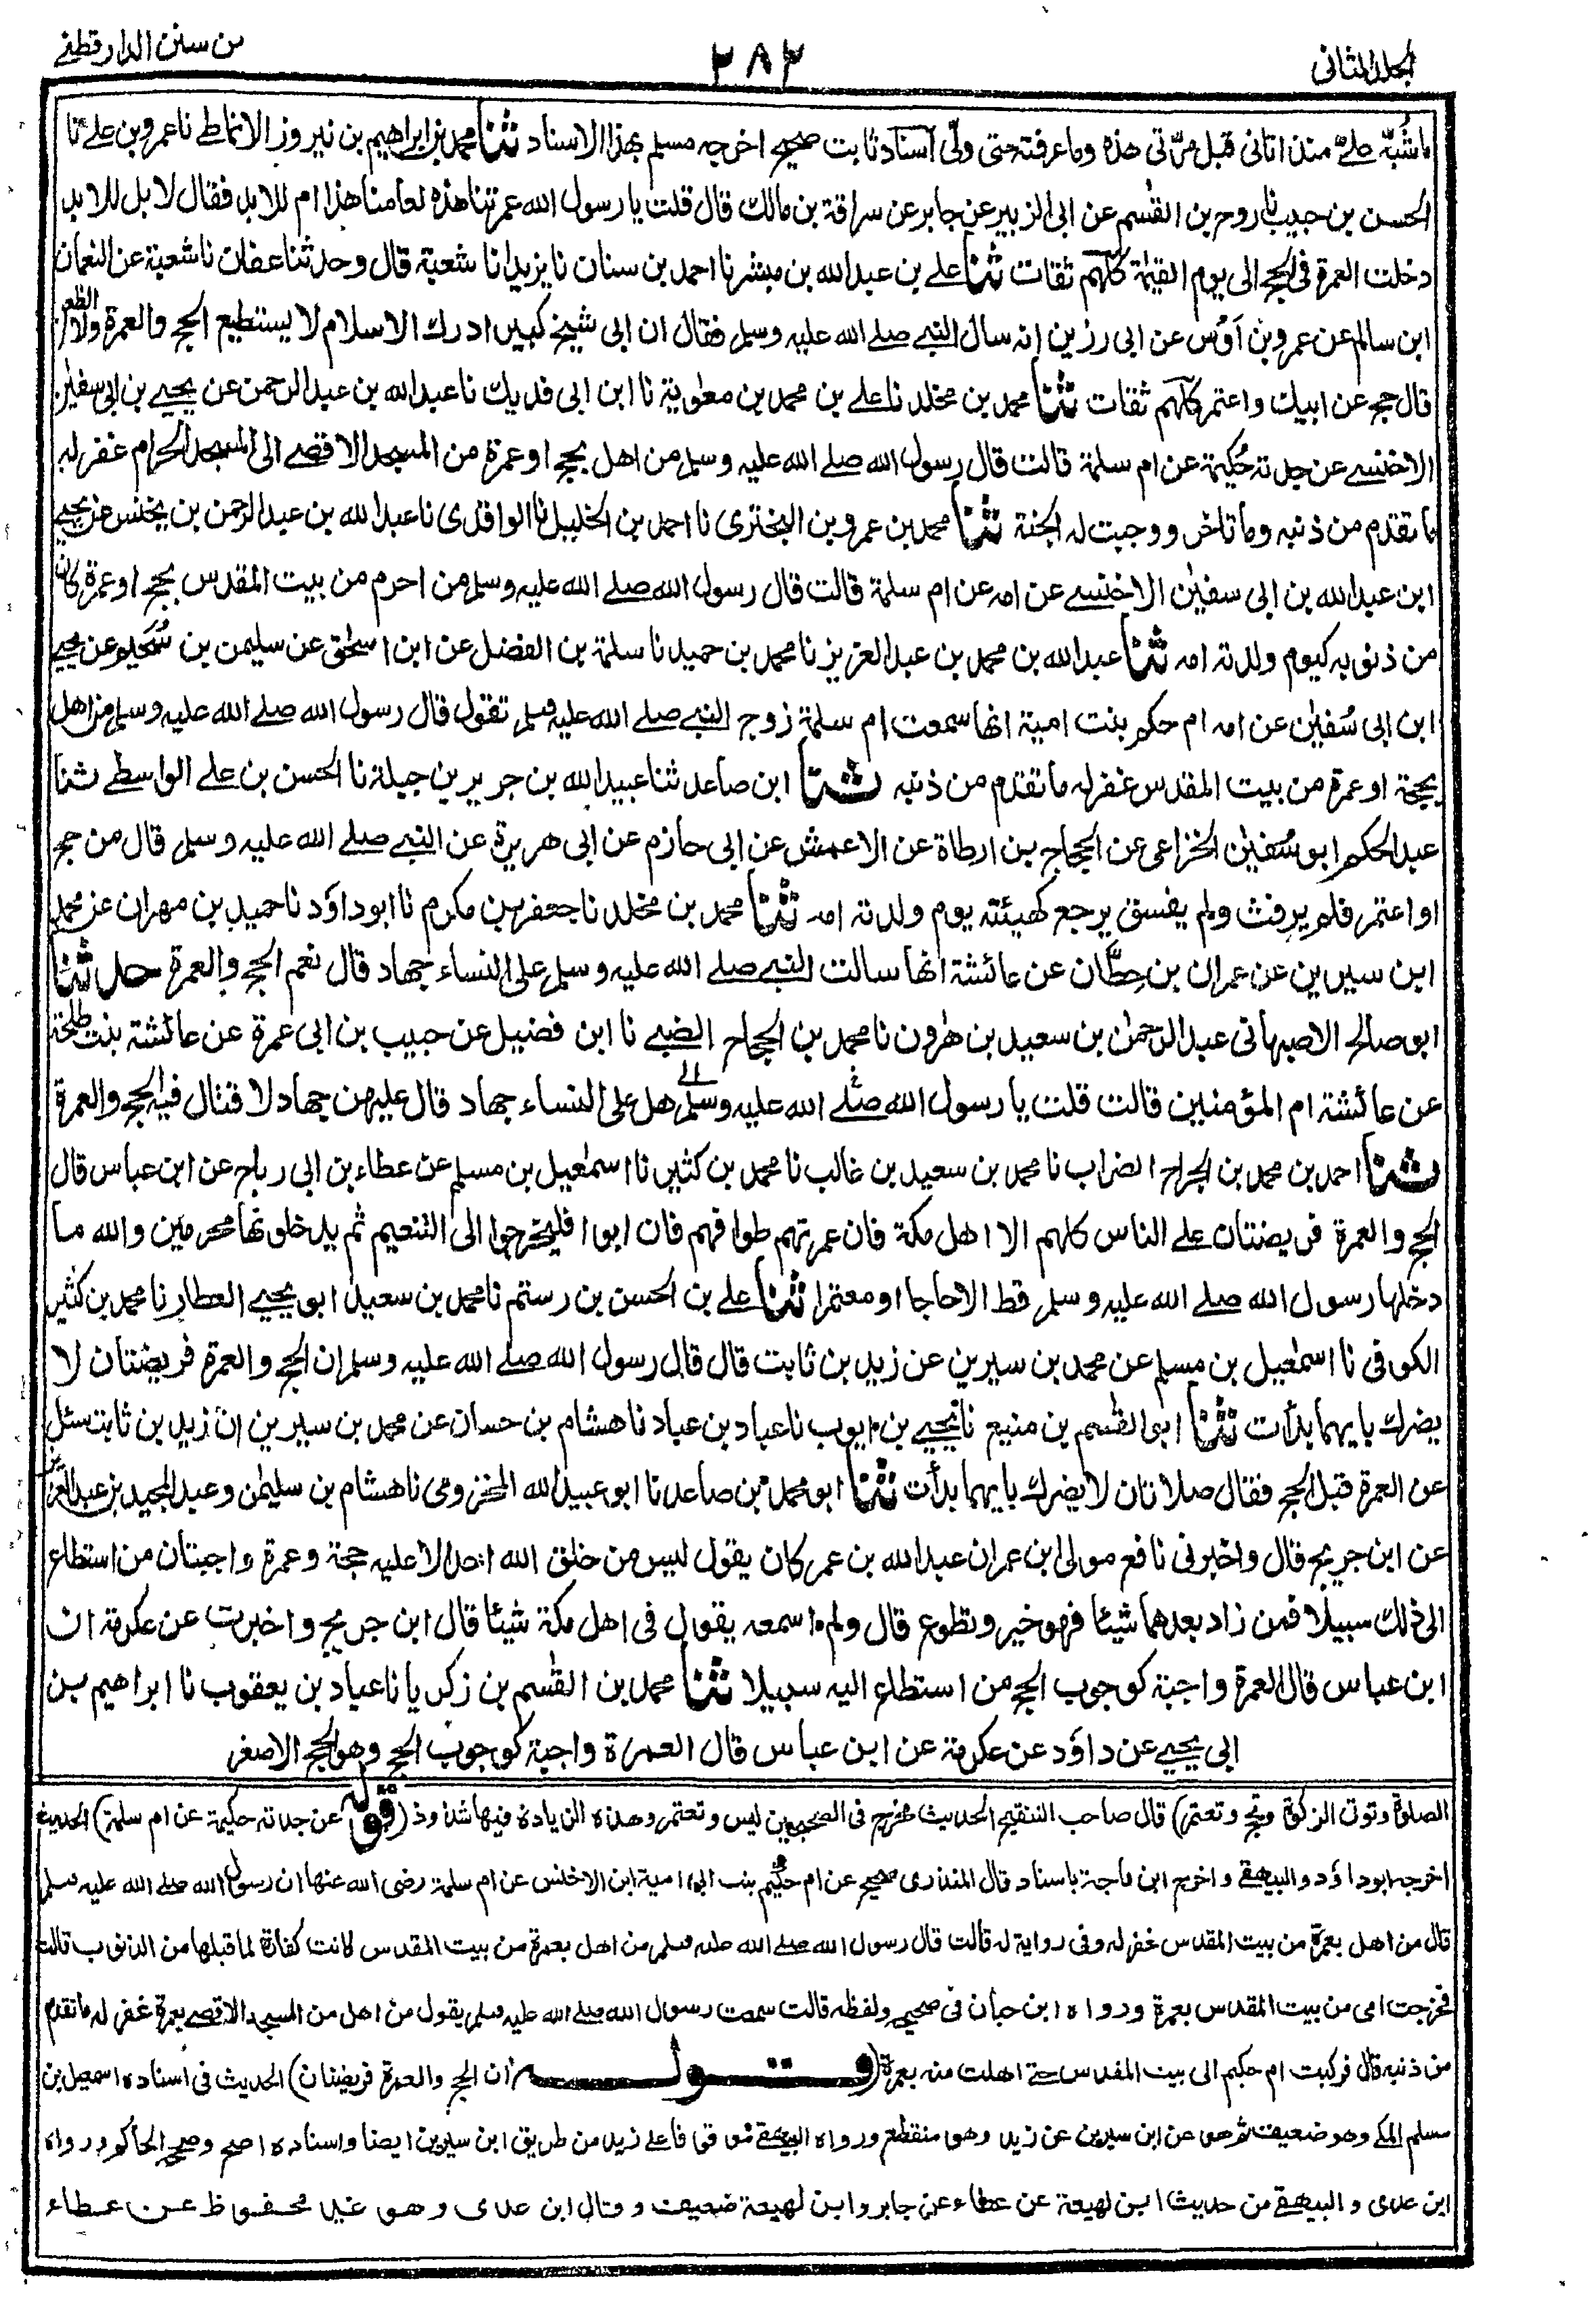 الجلد الثاني ٢٨٢ من سنن الدارقطنے
ما شُبِّہ علےّ منذ اتانی قبل مرّتی هذہ وما عرفتہ حتی ولّی اسناد ثابت صحیح اخرجہ مسلم بهذا الاسناد ثنا محمد بن ابراهیم بن نیروز الانماطے نا عمرو بن علے نا
الحسن بن حبیب نا روح بن القٰسم عن ابی الزبیر عن جابر عن سراقة بن مالك قال قلت یا رسول الله عمرتنا هذہ لعامنا هذا ام للابد فقال لا بل للابد
دخلت العمرة فی الحج الی یوم القیمة کلهم ثقات ثنا علے بن عبدالله بن مبشر نا احمد بن سنان نا یزید انا شعبة قال وحدثنا عفان نا شعبة عن النعمان
ابن سالم عن عمرو بن اَوْس عن ابی رزین انہ سال النبے صلے الله علیہ وسلم فقال ان ابی شیخ کبیر ادرك الاسلام لا یستطیع الحج والعمرة ولا الظعن
قال حج عن ابیك واعتمر کلهم ثقات ثنا محمد بن مخلد نا علے بن محمد بن معٰویة نا ابن ابی فدیك نا عبدالله بن عبدالرحمن عن یحیے بن ابی سفیٰن
الاخنسے عن جدتہ حُکیمة عن ام سلمة قالت قال رسول الله صلے الله علیہ وسلم من اهل بحج او عمرة من المسجد الاقصے الی المسجد الحرام غفر لہ
ما تقدم من ذنبہ وما تاخر ووجبت لہ الجنة ثنا محمد بن عمرو بن البختری نا احمد بن الخلیل نا الواقدی نا عبدالله بن عبدالرحمن بن یحنس عن یحیے
ابن عبدالله بن ابی سفیٰن الاخنسے عن امہ عن ام سلمة قالت قال رسول الله صلے الله علیہ وسلم من احرم من بیت المقدس بحج او عمرة کان
من ذنوبہ کیوم ولدتہ امہ ثنا عبدالله بن محمد بن عبدالعزیز نا محمد بن حمید نا سلمة بن الفضل عن ابن اسحٰق عن سلیمن بن سُحَیم عن یحیے
ابن ابی سُفیٰن عن امہ ام حکیم بنت امیة انها سمعت ام سلمة زوج النبے صلے الله علیہ وسلم تقول قال رسول الله صلے الله علیہ وسلم من اهل
بحجة او عمرة من بیت المقدس غفر لہ ما تقدم من ذنبہ ثنا ابن صاعد ثنا عبیدالله بن جریر بن جبلة نا الحسن بن علے الواسطے ثنا
عبدالحکیم ابو سُفیٰن الخزاعی عن الحجاج بن ارطاة عن الاعمش عن ابی حازم عن ابی هریرة عن النبے صلے الله علیہ وسلم قال من حج
او اعتمر فلم یرفث ولم یفسق یرجع کهیئتہ یوم ولدتہ امہ ثنا محمد بن مخلد نا جعفر بن مکرم نا ابو داؤد نا حمید بن مهران عن محمد
ابن سیرین عن عمران بن حِطّان عن عائشة انها سالت النبے صلے الله علیہ وسلم علی النساء جهاد قال نعم الحج والعمرة حدثنا
ابو صالح الاصبهانی عبدالرحمٰن بن سعید بن هٰرون نا محمد بن الحجاج الضبے نا ابن فضیل عن حبیب بن ابی عمرة عن عائشة بنت طلحة
عن عائشة ام المؤمنین قالت قلت یا رسول الله صلے الله علیہ وسلم هل علی النساء جهاد قال علیهن جهاد لا قتال فیہ الحج والعمرة
ثنا احمد بن محمد بن الجراح الضراب نا محمد بن سعید بن غالب نا محمد بن کثیر نا اسمٰعیل بن مسلم عن عطاء بن ابی رباح عن ابن عباس قال
الحج والعمرة فریضتان علے الناس کلهم الا اهل مکة فان عمرتهم طوافهم فان ابوا فلیخرجوا الی التنعیم ثم یدخلونها محرمین والله ما
دخلها رسول الله صلے الله علیہ وسلم قط الا حاجا او معتمرا ثنا علے بن الحسن بن رستم نا محمد بن سعید ابو یحیے العطار نا محمد بن کثیر
الکوفی نا اسمٰعیل بن مسلم عن محمد بن سیرین عن زید بن ثابت قال قال رسول الله صلے الله علیہ وسلم ان الحج والعمرة فریضتان لا
یضرك بایهما بدأت ثنا ابی القٰسم بن منیع نا یحیے بن ایوب نا عباد بن عباد نا هشام بن حسان عن محمد بن سیرین ان زید بن ثابت سئل
عن العمرة قبل الحج فقال صلاتان لا یضرك بایهما بدأت ثنا ابو محمد بن صاعد نا ابو عبیدالله المخزومی نا هشام بن سلیمٰن وعبدالمجید بن عبدالعزیز
عن ابن جریج قال واخبرنی نافع مولی ابن عمر ان عبدالله بن عمر کان یقول لیس من خلق الله احد الا علیہ حجة وعمرة واجبتان من استطاع
الی ذلك سبیلا فمن زاد بعدهما شیئا فهو خیر وتطوع قال ولم اسمعہ یقول فی اهل مکة شیئا قال ابن جریج واخبرت عن عکرمة ان
ابن عباس قال العمرة واجبة کوجوب الحج من استطاع الیہ سبیلا ثنا محمد بن القٰسم بن زکریا نا عباد بن یعقوب نا ابراهیم بن
ابی یحیے عن داؤد عن عکرمة عن ابن عباس قال العمرة واجبة کوجوب الحج وهو الحج الاصغر
الصلوة وتوتی الزکوة وتحج وتعتمر) قال صاحب التنقیح الحدیث مخرج فی الصحیحین لیس وتعتمر وهذہ الزیادة فیها شذوذ (قولہ عن جدتہ حکیمة عن ام سلمة) الحدیث
اخرجہ ابو داؤد والبیهقے واخرج ابن ماجة باسناد قال المنذری صحیح عن ام حکیم بنت ابی امیة ابن الاخنس عن ام سلمة رضی الله عنها ان رسول الله صلے الله علیہ وسلم
قال من اهل بعمرة من بیت المقدس غفر لہ وفی روایة لہ قالت قال رسول الله صلے الله علیہ وسلم من اهل بعمرة من بیت المقدس کانت کفارة لما قبلها من الذنوب قالت
فخرجت امی من بیت المقدس بعمرة ورواہ ابن حبان فی صحیحہ ولفظہ قالت سمعت رسول الله صلے الله علیہ وسلم یقول من اهل من المسجد الاقصے بعمرة غفر لہ ما تقدم
من ذنبہ قال فرکبت ام حکیم الی بیت المقدس حتے اهلت منہ بعمرة (قولہ ان الحج والعمرة فریضتان) الحدیث فی اسنادہ اسمعیل بن
مسلم المکے وهو ضعیف ثم هو عن ابن سیرین عن زید وهو منقطع ورواہ البیهقے موقوفا علے زید من طریق ابن سیرین ایضا واسنادہ اصح وصححہ الحاکم ورواہ
ابن عدی والبیهقے من حدیث ابن لهیعة عن عطاء عن جابر وابن لهیعة ضعیف وقال ابن عدی وهو غیر محفوظ عن عطاء